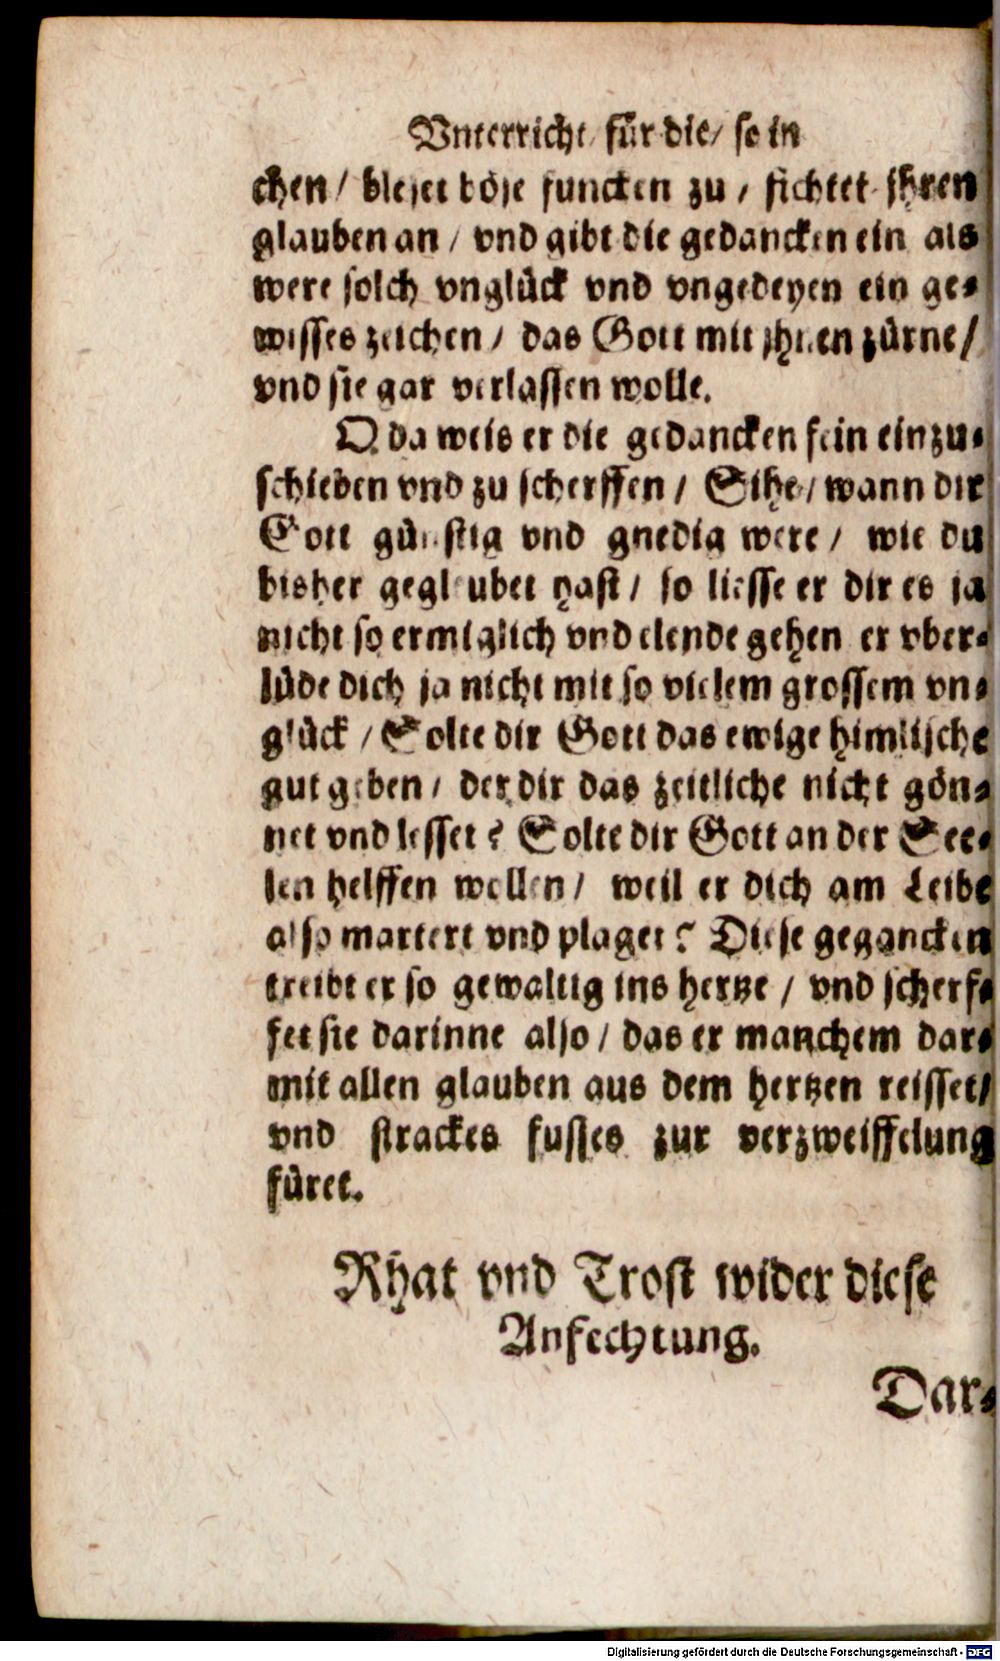 Vnterricht für die/ so in
chen/ bleset böse functen zu/ fichtet ihren
glauben an/ vnd gibt die gedancken ein als
were solch vnglück vnd vngedeyen ein ge-
wisses zeichen/ das Gott mit ihnen zürne/
vnd sie gar verlassen wolle.
O da weis er die gedancken fein einzu-
schieben vnd zu scherffen/ Sihe/ wann dir
Gott günstig vnd gnedig were/ wie du
bisher gegleubet hast/ so liesse er dir es ja
nicht so ermiglich vnd elende gehen er vber-
lüde dich ja nicht mit so vielem grossem vn-
glück/ Solte dir Gott das ewige himlische
gut geben/ der dir das zeitliche nicht gön-
net vnd lesset? Solte dir Gott an der See-
len helffen wollen/ weil er dich am Leibe
also martert vnd plaget? Diese gegancken
treibt er so gewaltig ins hertze/ vnd scherf-
fet sie darinne also/ das er manchem dar-
mit allen glauben aus dem hertzen reisset/
vnd strackes fusses zur verzweiffelung
füret.
Rhat vnd Trost wider diese
Anfechtung.
Dar-
Digitalisierung gefördert durch die Deutsche Forschungsgemeinschaft - DFG